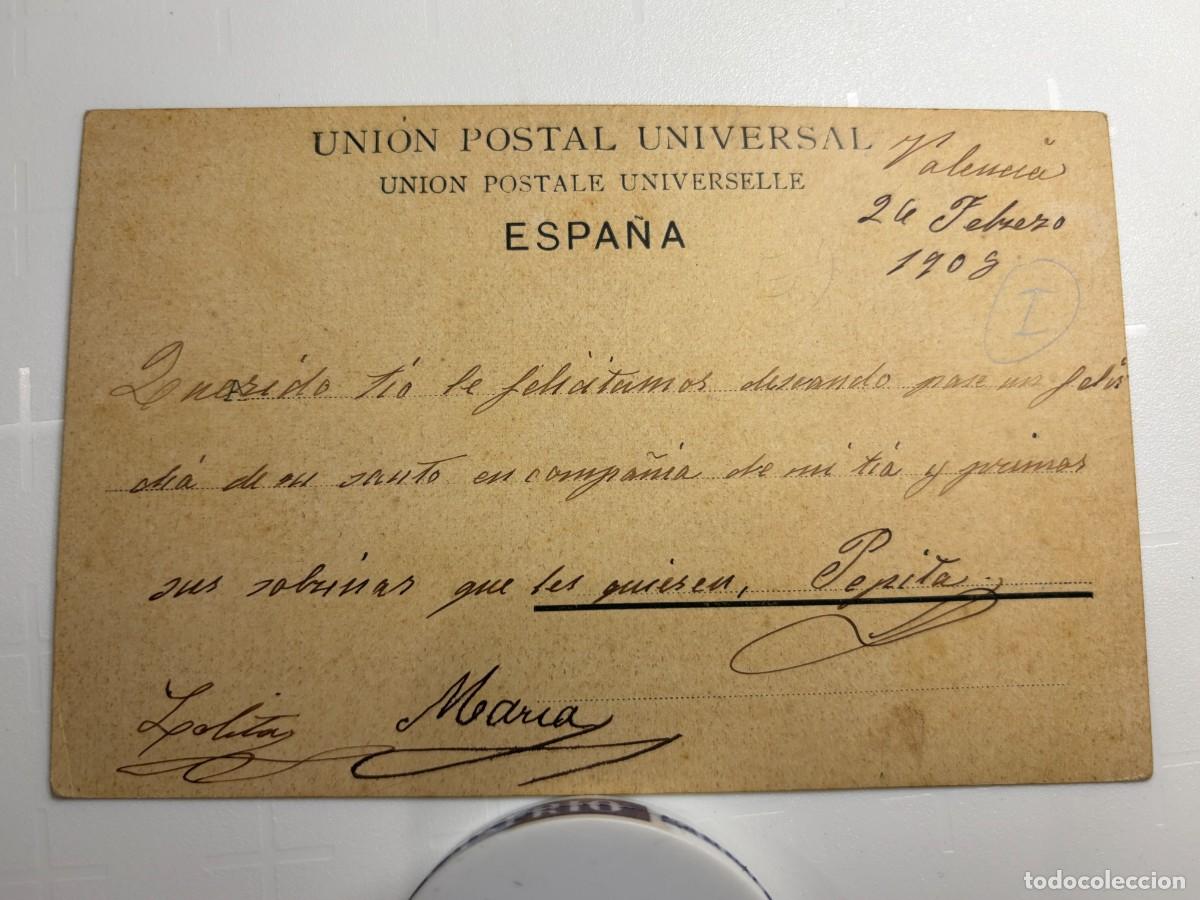 UNIÓN POSTAL UNIVERSAL
UNION POSTALE UNIVERSELLE
ESPAÑA
Valencia
26 Febrero
1908
I
Querido tio le felicitamos deseando pase un felis
dia de su santo en compañia de mi tia y primos
sus sobrinas que les quieren, Pepita
Lolita Maria
todocoleccion